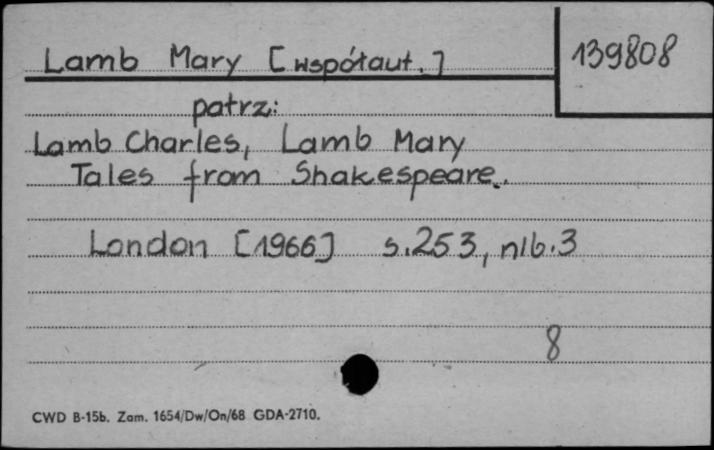 Lamb Mary [współaut.] 139808
patrz:
Lamb Charles, Lamb Mary
Tales from Shakespeare.
London [1966] s.253, nlb.3
8
CWD B-15b. Zam. 1654/Dw/On/68 GDA-2710.